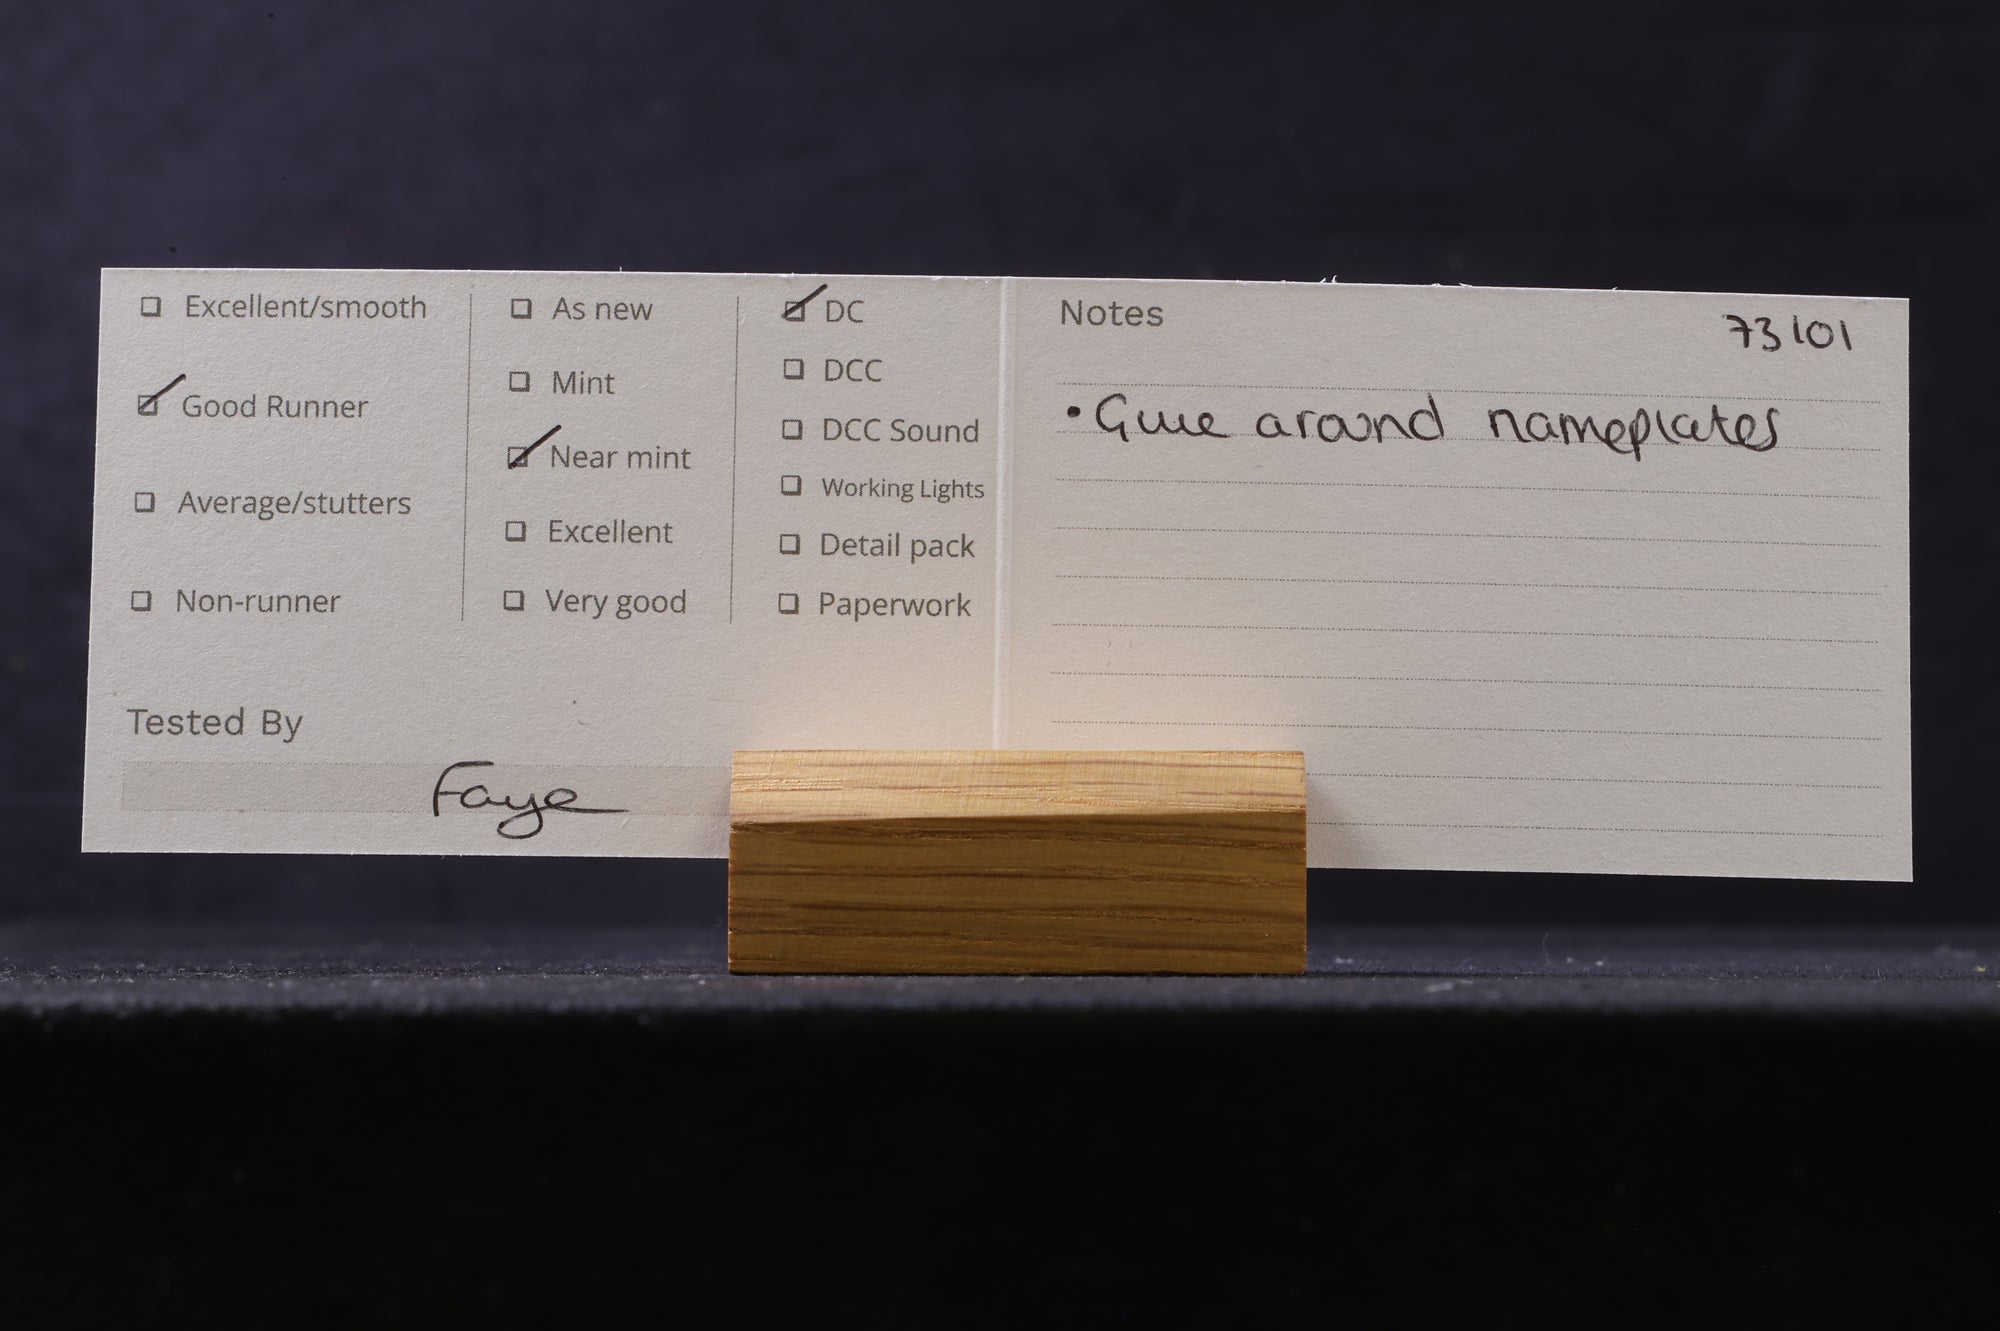 Excellent/smooth
Good Runner
Average/stutters
Non-runner
As new
Mint
Near mint
Excellent
Very good
DC
DCC
DCC Sound
Working Lights
Detail pack
Paperwork
Tested By
Faye
Notes
73101
• Glue around nameplates